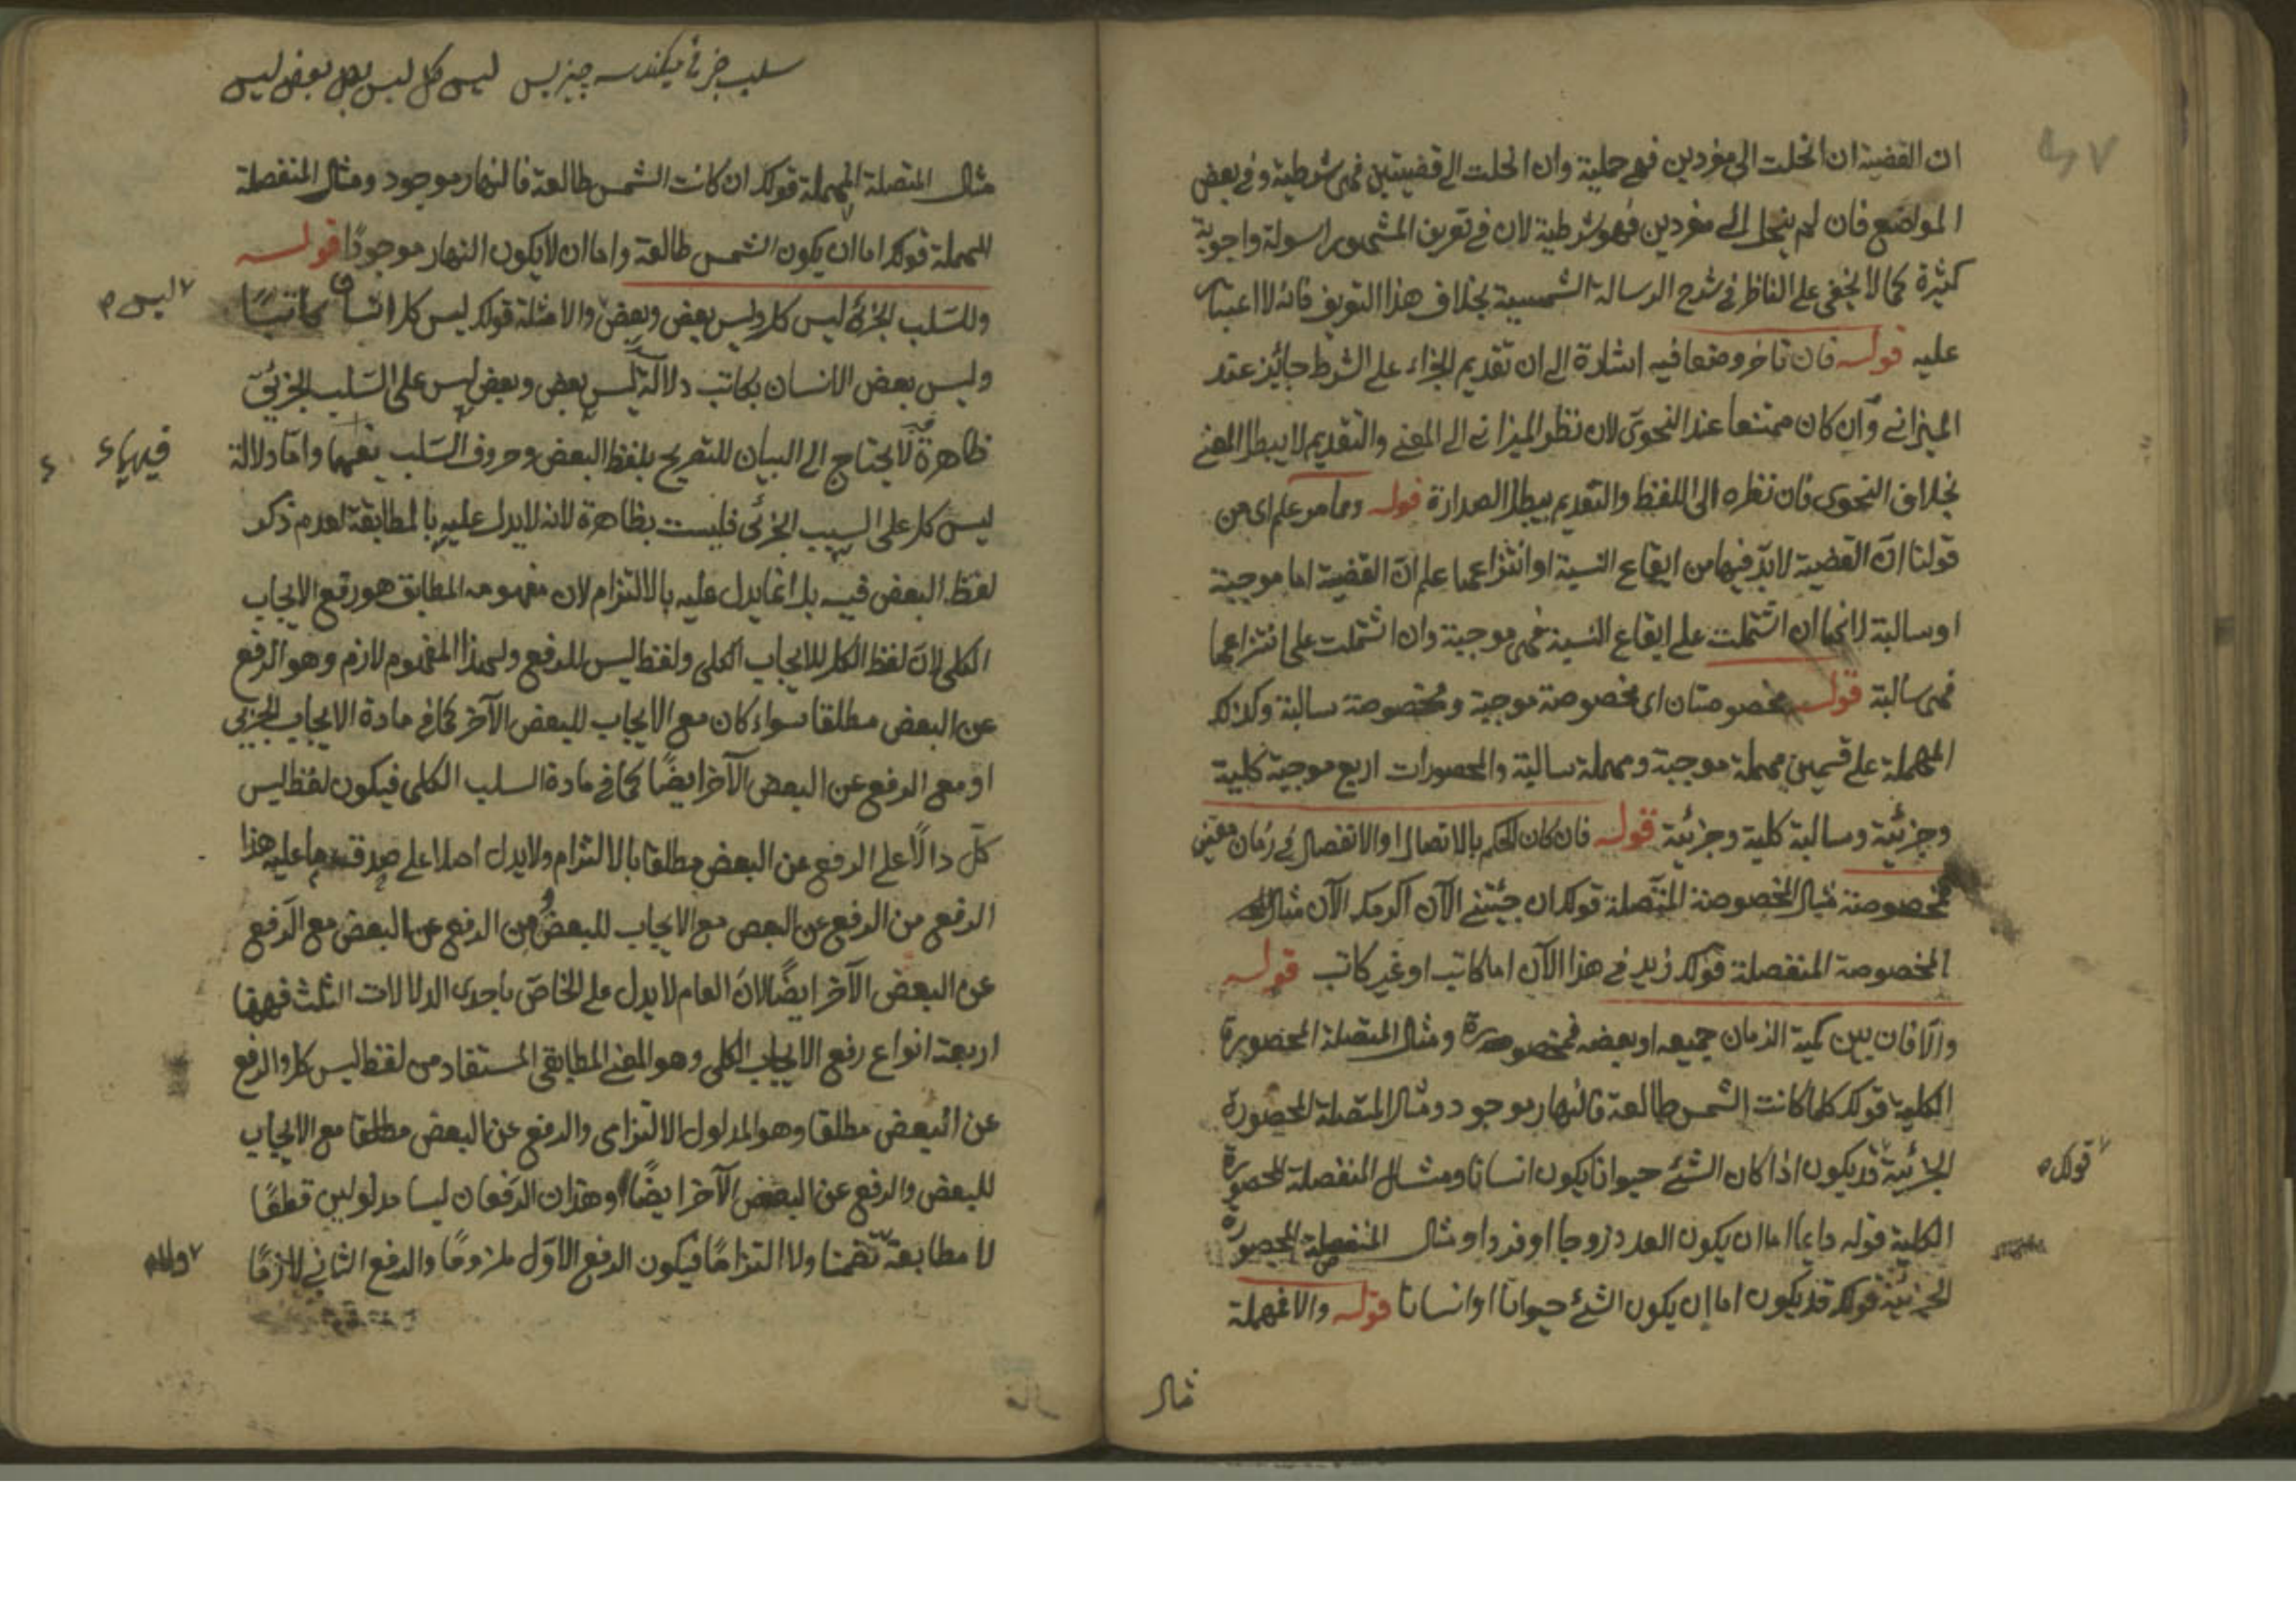 ان القضية ان انحلت الى مفردين فهي حملية وان انحلت الى قضيتين فهي شرطية وفي بعض
المواضع فان لم ينحل الى مفردين فهو شرطية لان في تعريف المشهور اسولة واجوبة
كثيرة كما لا يخفى على الناظر في شرح الرسالة الشمسية بخلاف هذا التعريف فانه لا اعتبار
عليه قوله فان تاخر وضعا فيه اشارة الى ان تقديم الجزاء على الشرط جائز عند
الميزاني وان كان ممتنعا عند النحوى لان نظر الميزاني الى المعنى والتقديم لا يبطل المعنى
بخلاف النحوى فان نظره الى اللفظ والتقديم يبطل الصدارة قوله ومما مر علم اى من
قولنا ان القضية لا بد فيها من ايقاع النسبة او انتزاعها علم ان القضية اما موجبة
او سالبة لانها ان اشتملت على ايقاع النسبة فهى موجبة وان اشتملت على انتزاعها
فهى سالبة قوله مخصوصتان اى مخصوصة موجبة ومخصوصة سالبة وكذلك
المهملة على قسمين مهملة موجبة ومهملة سالبة والمحصورات اربع موجبة كلية
وجزئية وسالبة كلية وجزئية قوله فان كان الحكم بالاتصال او الانفصال في زمان معين
فمخصوصة مثال المخصوصة المتصلة قولك ان جئتنى الآن اكرمك الآن مثال
المخصوصة المنفصلة قولك زيد في هذا الآن اما كاتب او غير كاتب قوله
والا فان بين كمية الزمان جميعه او بعضه فمحصورة ومثال المتصلة المحصورة
الكلية قولك كلما كانت الشمس طالعة فالنهار موجود ومثال المتصلة المحصورة
الجزئية قد يكون اذا كان الشئ حيوانا يكون انسانا ومثال المنفصلة المحصورة
قولك
الكلية قوله دايما اما ان يكون العدد زوجا او فردا ومثال المنفصلة المحصورة
الجزئية قولك قد يكون اما ان يكون الشئ حيوانا او انسانا قوله والا فمهملة
مثال
سلب جزئي ميكند سه چيز بس ليس كل ليس بعض بعض ليس
مثال المتصلة المهملة قولك ان كانت الشمس طالعة فالنهار موجود ومثال المنفصلة
المهملة قولك اما ان يكون الشمس طالعة واما ان لا يكون النهار موجودًا قوله
وللسلب الجزئ ليس كل وليس بعض وبعض والامثلة قولك ليس كل انسان كاتبًا
ليس
وليس بعض الانسان بكاتب دلالة ليس بعض وبعض ليس على السلب الجزئى
ظاهرة لا يحتاج الى البيان للتصريح بلفظ البعض وحروف السلب واما دلالة
ليس كل على السلب الجزئى فليست بظاهرة لانه لا يدل عليه بالمطابقة لعدم ذكر
لفظ البعض فيه بل انما يدل عليه بالالتزام لان مفهومه المطابق هو رفع الايجاب
الكلى لان لفظ الكل للايجاب الكلى ولفظ ليس للرفع ولهذا المفهوم لازم وهو الرفع
عن البعض مطلقا سواء كان مع الايجاب للبعض الآخر كما في مادة الايجاب الجزئي
او مع الرفع عن البعض الآخر ايضًا كما في مادة السلب الكلى فيكون لفظ ليس
كل دالًا على الرفع عن البعض مطلقا بالالتزام ولا يدل اصلا على ما عليه هذا
الرفع من الرفع عن البعض مع الايجاب للبعض ومن الرفع عن البعض مع الرفع
عن البعض الآخر ايضًا لان العام لا يدل على الخاص باحدى الدلالات الثلث فههنا
اربعة انواع رفع الايجاب الكلى وهو المعنى المطابقى المستفاد من لفظ ليس كل والرفع
عن البعض مطلقا وهو المدلول الالتزامى والرفع عن البعض مطلقا مع الايجاب
للبعض والرفع عن البعض الآخر ايضًا وهذان الرفعان ليسا مدلولين قطعًا
لا مطابعة تضمنا ولا التزامًا فيكون الرفع الاول ملزومًا والرفع الثاني لازمًا
ولا